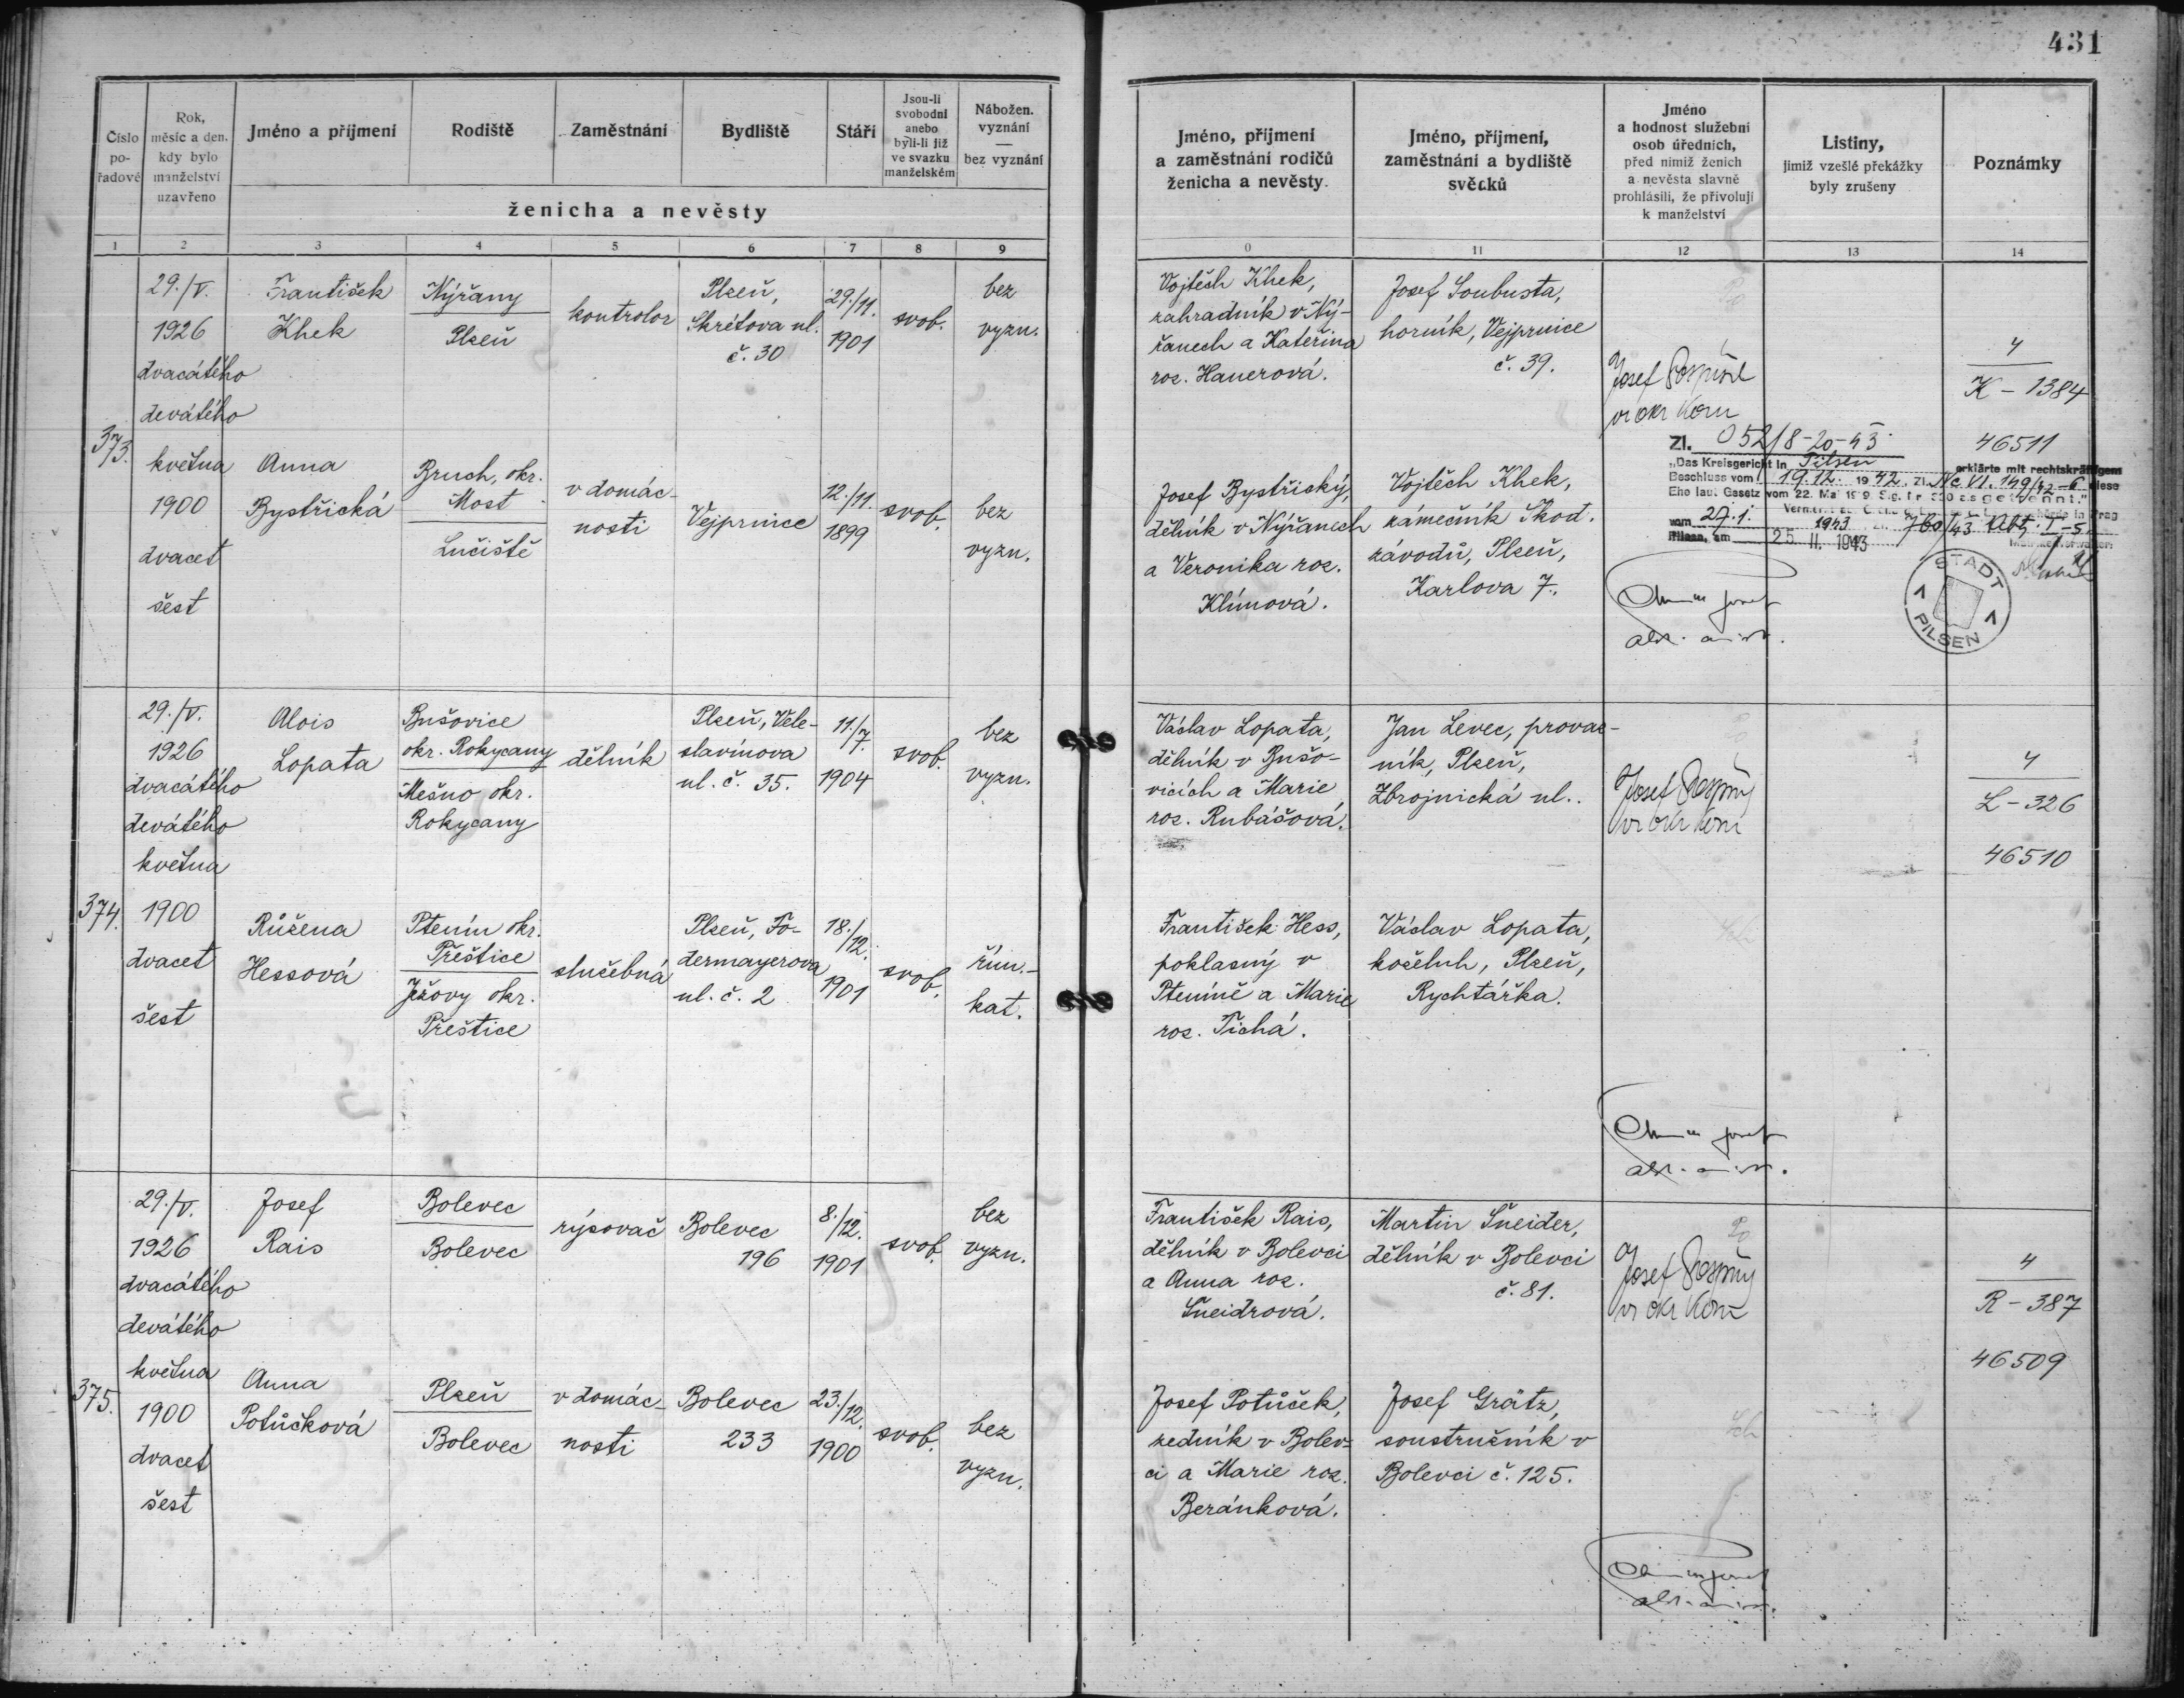 431
Číslo pořadové
Rok, měsíc a den, kdy bylo manželství uzavřeno
Jméno a příjmení
Rodiště
Zaměstnání
Bydliště
Stáří
Jsou-li svobodni anebo byli-li již ve svazku manželském
Nábožen. vyznání — bez vyznání
ženicha a nevěsty
Jméno, příjmení a zaměstnání rodičů ženicha a nevěsty
Jméno, příjmení, zaměstnání a bydliště svědků
Jméno a hodnost služební osob úředních, před nimiž ženich a nevěsta slavně prohlásili, že přivolují k manželství
Listiny, jimiž vzešlé překážky byly zrušeny
Poznámky
1 2 3 4 5 6 7 8 9 0 11 12 13 14
373.
29./V.
1926
dvacátého
devátého
května
1900
dvacet
šest
František
Khek
Nýřany
Plzeň
kontrolor
Plzeň,
Skrétova ul.
č. 30
29./11.
1901
svob.
bez
vyzn.
Vojtěch Khek,
zahradník v Ný-
řanech a Kateřina
roz. Hauerová.
Josef Soubusta,
horník, Vejprnice
č. 39.
Josef Pospíšil
4
K - 1384
46511
Anna
Bystřická
Bruch, okr.
Most
Lučiště
v domác-
nosti
Vejprnice
12./11.
1899
svob.
bez
vyzn.
Josef Bystřický,
dělník v Nýřanech
a Veronika roz.
Klímová.
Vojtěch Khek,
zámečník Škod.
závodů, Plzeň,
Karlova 7.
Zl. 052/8-20-43
"Das Kreisgericht in Pilsen erklärte mit rechtskräftigem
Beschluss vom 19.12. 1942. Zl. Nc VI. 149/42-6 diese
Ehe laut Gesetz vom 22. Mai
vom 29.1. 1943 760/43 Abt. I-5
Pilsen, am 25. II. 1943
STADT
PILSEN
374.
29./V.
1926
dvacátého
devátého
května
1900
dvacet
šest
Alois
Lopata
Bušovice
okr. Rokycany
Mešno okr.
Rokycany
dělník
Plzeň, Vele-
slavínova
ul. č. 35.
11./7.
1904
svob.
bez
vyzn.
Václav Lopata,
dělník v Bušo-
vicích a Marie
roz. Rubášová.
Jan Levec, provaz-
ník, Plzeň,
Zbrojnická ul..
4
L - 326
46510
Růžena
Hessová
Ptenín okr.
Přeštice
Ježovy okr.
Přeštice
služebná
Plzeň, Fo-
dermayerova
ul. č. 2
18./12.
1901
svob.
řím.-
kat.
František Hess,
poklasný v
Pteníně a Marie
roz. Tichá.
Václav Lopata,
koželuh, Plzeň,
Rychtářka.
375.
29./V.
1926
dvacátého
devátého
května
1900
dvacet
šest
Josef
Rais
Bolevec
Bolevec
rýsovač
Bolevec
196
8./12.
1901
svob.
bez
vyzn.
František Rais,
dělník v Bolevci
a Anna roz.
Šneidrová.
Martin Šneider,
dělník v Bolevci
č. 81.
4
R - 387
46509
Anna
Potůčková
Plzeň
Bolevec
v domác-
nosti
Bolevec
233
23./12.
1900
svob.
bez
vyzn.
Josef Potůček,
zedník v Bolev-
ci a Marie roz.
Beránková.
Josef Grätz,
soustružník v
Bolevci č. 125.